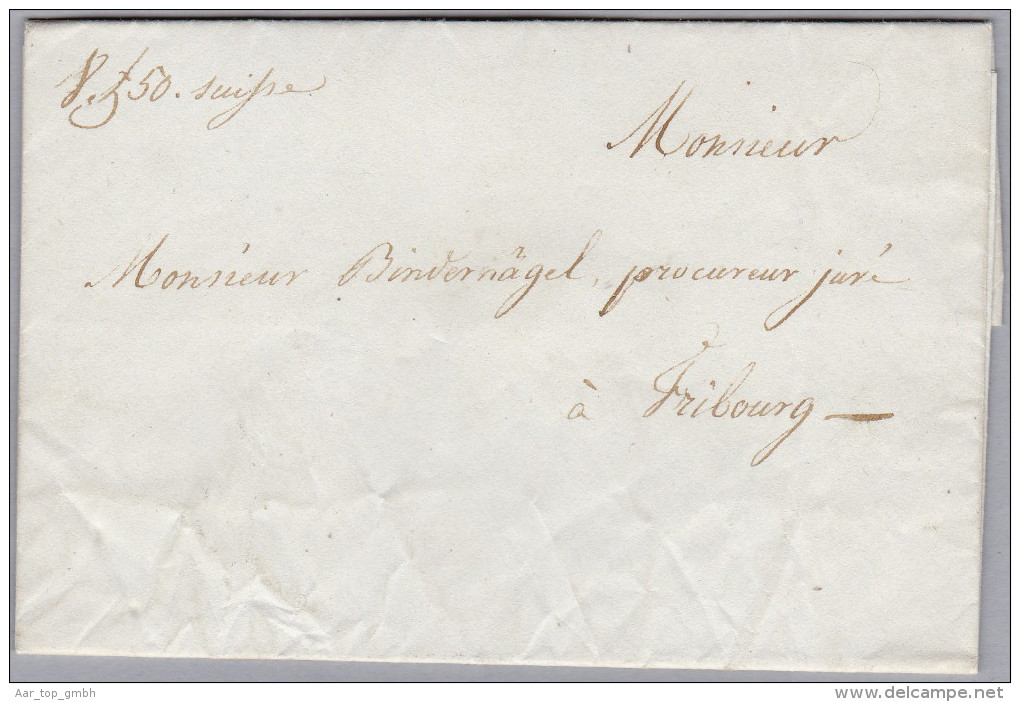 50. suisse
Monsieur
Monsieur Bindernägel, procureur juré
à Fribourg
Aar_top_gmbh
delcampe.net